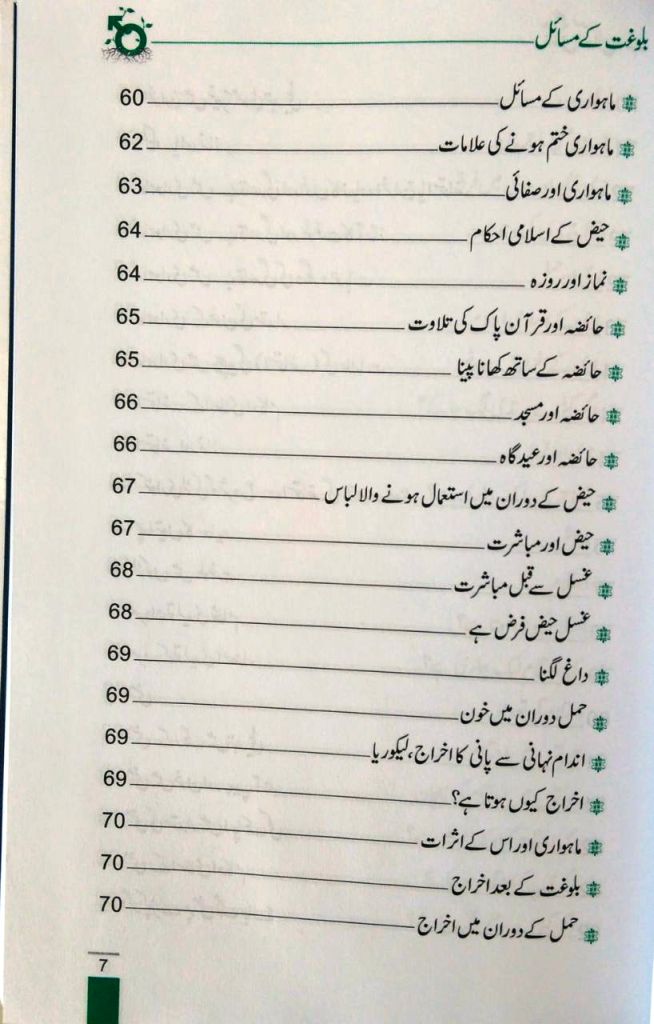 بلوغت کے مسائل
ماہواری کے مسائل 60
ماہواری ختم ہونے کی علامات 62
ماہواری اور صفائی 63
حیض کے اسلامی احکام 64
نماز اور روزہ 64
حائضہ اور قرآن پاک کی تلاوت 65
حائضہ کے ساتھ کھانا پینا 65
حائضہ اور مسجد 66
حائضہ اور عیدگاہ 66
حیض کے دوران میں استعمال ہونے والا لباس 67
حیض اور مباشرت 67
غسل سے قبل مباشرت 68
غسل حیض فرض ہے 68
داغ لگنا 69
حمل دوران میں خون 69
اندام نہانی سے پانی کا اخراج، لیکوریا 69
اخراج کیوں ہوتا ہے؟ 69
ماہواری اور اس کے اثرات 70
بلوغت کے بعد اخراج 70
حمل کے دوران میں اخراج 70
7